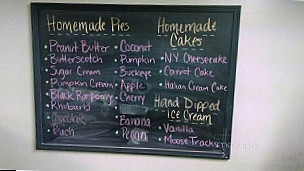 Homemade Pies
• Peanut Butter
• Butterscotch
• Sugar Cream
• Pumpkin Cream
• Black Raspberry
• Rhubarb
• Chocolate
• Peach
• Coconut
• Pumpkin
• Buckeye
• Apple
• Cherry
• Banana
• Pecan
Homemade
Cakes
• NY Cheesecake
• Carrot Cake
• Italian Cream Cake
Hand Dipped
Ice Cream
• Vanilla
• Moose Tracks